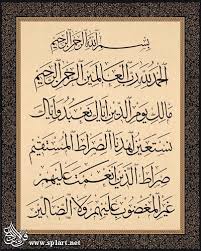 بسم الله الرحمن الرحيم
الحمد لله رب العالمين الرحمن الرحيم
مالك يوم الدين إياك نعبد وإياك
نستعين اهدنا الصراط المستقيم
صراط الذين أنعمت عليهم
غير المغضوب عليهم ولا الضالين
www.splart.net